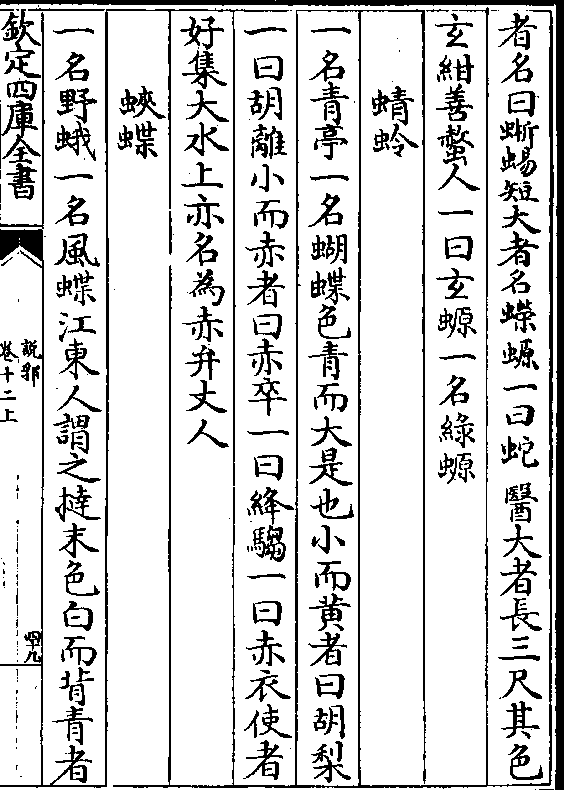 者名曰蜥蜴短大者名蠑螈一曰蛇醫大者長三尺其色
玄紺善螫人一曰玄螈一名綠螈
蜻蛉
一名青亭一名蝴蝶色青而大是也小而黄者曰胡梨
一曰胡離小而赤者曰赤卒一曰絳騶一曰赤衣使者
好集大水上亦名為赤弁丈人
蛺蝶
一名野蛾一名風蝶江東人謂之撻末色白而背青者
欽定四庫全書
說郛
卷十二上
四九